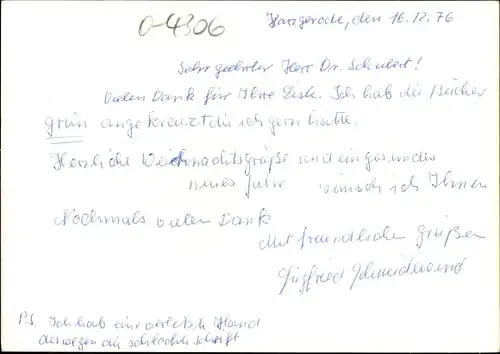 0-4306
Harzgerode, den 16.12.76
Sehr geehrter Herr Dr. Schubert!
Vielen Dank für Ihre Liste. Ich hab die Bücher
grün angekreuzt die ich gern hätte.
Herzliche Weihnachtsgrüße und ein gesundes
neues Jahr wünsch ich Ihnen
Nochmals vielen Dank
Mit freundlichen Grüßen
Siegfried Schneidewind
P.S. Ich hab eine verletzte Hand
deswegen die schlechte Schrift